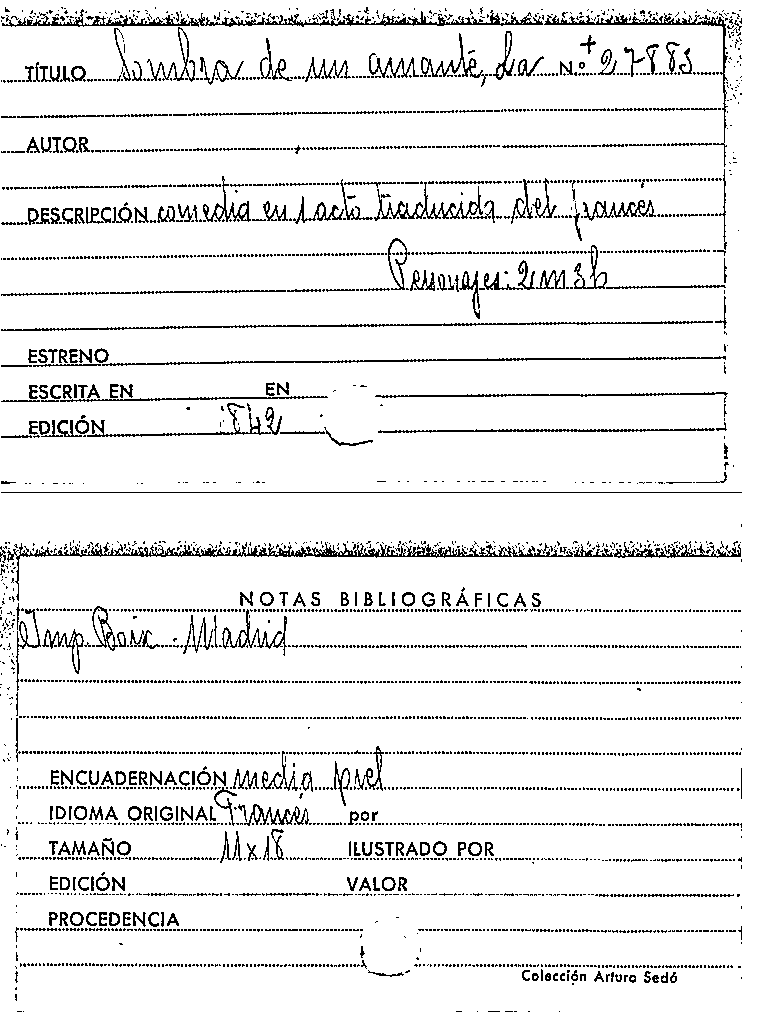 TÍTULO Sombra de un amante, La N.º + 27883
AUTOR
DESCRIPCIÓN comedia en 1 acto traducida del francés
Personajes: 2 m 3 h
ESTRENO
ESCRITA EN EN
EDICIÓN 1842
NOTAS BIBLIOGRÁFICAS
Imp. Boix - Madrid
ENCUADERNACIÓN media piel
IDIOMA ORIGINAL Francés por
TAMAÑO 11 x 18 ILUSTRADO POR
EDICIÓN VALOR
PROCEDENCIA
Colección Arturo Sedó